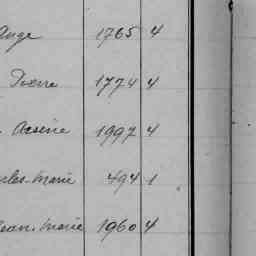 Ange 1765 4
Pierre 1774 4
Arsène 1997 4
rles-Marie 494 1
Jean-Marie 1960 4